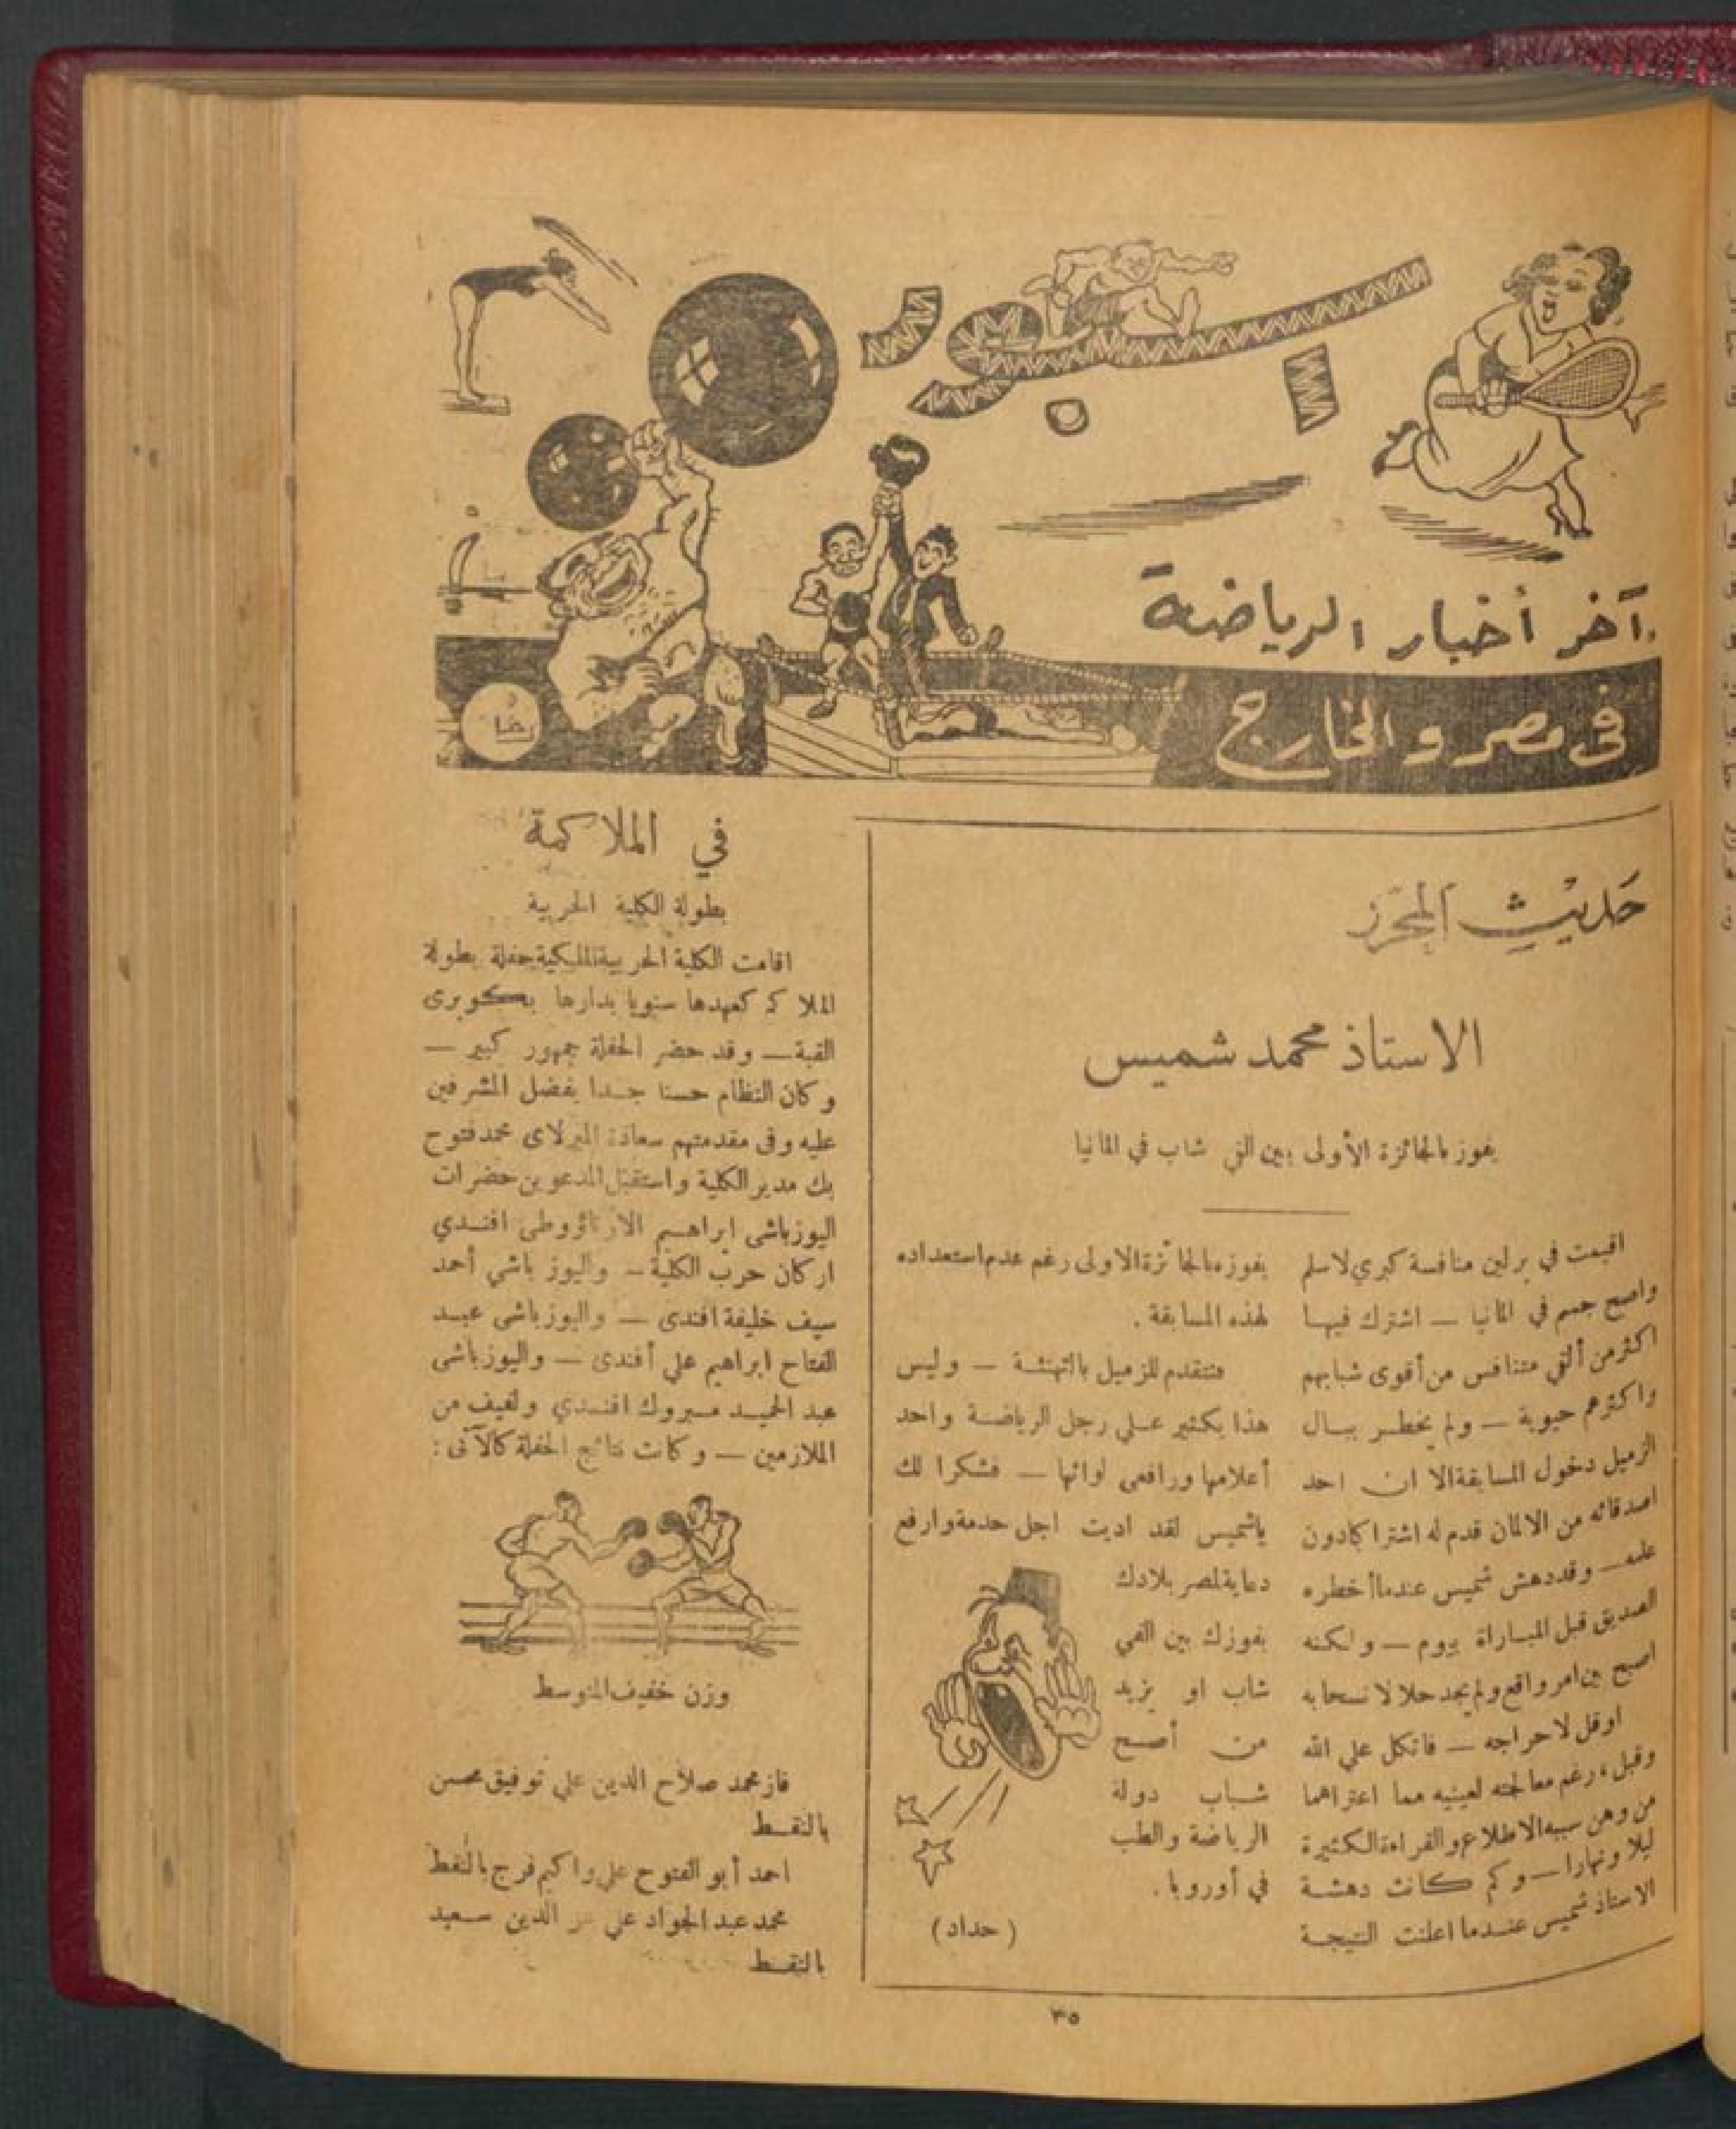 سبور
آخر أخبار الرياضة
في مصر والخارج
رخا
حديث المحرر
الاستاذ محمد شميس
يفوز بالجائزة الأولى بين الفي شاب في المانيا
اقيمت في برلين منافسة كبري لاسلم
واصح جسم في المانيا — اشترك فيها
اكثر من ألفي متنافس من أقوى شبابهم
واكثرهم حيوية — ولم يخطر ببال
الزميل دخول المسابقة الا ان احد
اصدقائه من الالمان قدم له اشتراكا دون
علمه — وقد دهش شميس عندما أخطره
الصديق قبل المباراة بيوم — ولكنه
اصبح بين امر واقع ولم يجد حلا لانسحابه
اوقل لاحراجه — فاتكل علي الله
وقبل، رغم معالجته لعينيه مما اعتراهما
من وهن سببه الاطلاع والقراءة الكثيرة
ليلا ونهارا — وكم كانت دهشة
الاستاذ شميس عندما اعلنت النتيجة
بفوزه بالجائزة الاولى رغم عدم استعداده
لهذه المسابقة .
فنتقدم للزميل بالتهنئة — وليس
هذا بكثير علي رجل الرياضة واحد
أعلامها ورافعى لوائها — فشكرا لك
ياشميس لقد اديت اجل خدمة وارفع
دعاية لمصر بلادك
بفوزك بين الفي
شاب او يزيد
من أصح
شباب دولة
الرياضة والطب
في أوروبا .
( حداد )
في الملاكمة
بطولة الكلية الحربية
اقامت الكلية الحربية الملكية حفلة بطولة
الملاكمة كعهدها سنويا بدارها بكوبرى
القبة — وقد حضر الحفلة جمهور كبير —
وكان النظام حسنا جدا بفضل المشرفين
عليه وفى مقدمتهم سعادة الميرلاى محمد فتوح
بك مدير الكلية واستقبل المدعوين حضرات
اليوزباشى ابراهيم الارناؤوطى افندي
اركان حرب الكلية — واليوز باشي أحمد
سيف خليفة افندى — واليوزباشى عبد
الفتاح ابراهيم علي أفندى — واليوزباشى
عبد الحميد مبروك افندي ولفيف من
الملازمين — وكانت نتائج الحفلة كالآتى :
وزن خفيف المتوسط
فاز محمد صلاح الدين علي توفيق محسن
بالنقط
احمد أبو الفتوح علي واكيم فرج بالنقط
محمد عبد الجواد علي عز الدين سعيد
بالنقط
٣٥